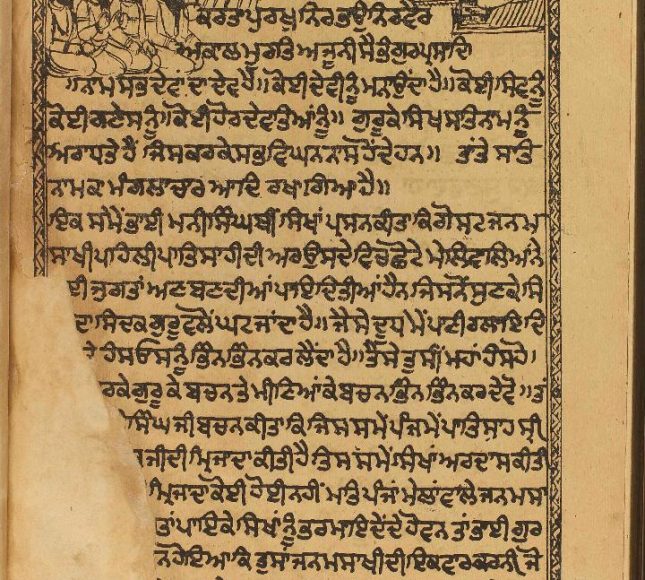 ਕਰਤਾ ਪੁਰਖੁ ਨਿਰਭਉ ਨਿਰਵੈਰ
ਅਕਾਲ ਮੂਰਤਿ ਅਜੂਨੀ ਸੈਭੰ ਗੁਰਪ੍ਰਸਾਦਿ
॥ਨਾਮ ਸਭ ਦੇਵਾਂ ਦਾ ਦੇਵ ਹੈ॥ ਕੋਈ ਦੇਵੀ ਨੂੰ ਮਨਾਉਂਦਾ ਹੈ॥ ਕੋਈ ਸਿਵ ਨੂੰ
ਕੋਈ ਗਣੇਸ ਨੂੰ॥ ਕੋਈ ਹੋਰ ਦੇਵਤਿਆਂ ਨੂੰ॥ ਗੁਰੂ ਕੇ ਸਿਖ ਸਤਿਨਾਮ ਨੂੰ
ਅਰਾਧਤੇ ਹੈਂ ਜਿਸ ਕਰਕੇ ਸਭ ਵਿਘਨ ਨਾਸ ਹੋਂਦੇ ਹਨ॥ ਤਾਂਤੇ ਸਤਿ
ਨਾਮ ਕਾ ਮੰਗਲਾਚਾਰ ਆਦਿ ਰਖਾ ਗਿਆ ਹੈ॥
ਇਕ ਸਮੇਂ ਭਾਈ ਮਨੀ ਸਿੰਘ ਥੀਂ ਸਿਖਾਂ ਪ੍ਰਸਨ ਕੀਤਾ ਕਿ ਗੋਸਟ ਜਨਮ
ਸਾਖੀ ਪਹਿਲੀ ਪਾਤਿਸਾਹੀ ਦੀ ਅਰ ਉਸਦੇ ਵਿਚ ਛੋਟੇ ਮੇਲ ਵਾਲਿਆਂ ਨੇ
ਈ ਜੁਗਤਾਂ ਅਣਬਣਦੀਆਂ ਪਾਇ ਦਿਤੀਆਂ ਹੈਨ ਜਿਸਨੋਂ ਸੁਣਕੇ ਸਿ
ਦਾ ਸਿਦਕ ਗੁਰੂ ਵਲੋਂ ਘਟ ਜਾਂਦਾ ਹੈ॥ ਜੈਸੇ ਦੂਧ ਮੇਂ ਪਾਣੀ ਰਲਾਇ ਦਿ
ਤੇ ਹੰਸ ਓਸ ਨੂੰ ਭਿੰਨ ਭਿੰਨ ਕਰ ਲੈਂਦਾ ਹੈ॥ ਤੈਸੇ ਤੁਸੀਂ ਮਹਾਂ ਹੰਸ ਹੋ।
ਰਕੇ ਗੁਰੂ ਕੇ ਬਚਨ ਤੇ ਮੀਣਿਆਂ ਕੇ ਬਚਨ ਭਿੰਨ ਭਿੰਨ ਕਰ ਦੇਵੋ॥ ਤਾਂ
ਸਿੰਘ ਜੀ ਬਚਨ ਕੀਤਾ ਕਿ ਜਿਸ ਸਮੇਂ ਪੰਜਮੇਂ ਪਾਤਿਸਾਹ ਸ੍ਰੀ
ਜੀ ਦੀ ਮ੍ਰਿਜਾਦਾ ਕੀਤੀ ਹੈ ਤਿਸ ਸਮੇਂ ਸਿਖਾਂ ਅਰਦਾਸ ਕੀਤੀ
ਮ੍ਰਿਜਾਦਾ ਕੋਈ ਹੋਈ ਨਹੀਂ ਮਤਿ ਪੰਜਾਂ ਮੇਲਾਂ ਵਾਲੇ ਜਨਮਸਾ
ਤਾਂ ਪਾਇਕੇ ਸਿਖਾਂ ਨੂੰ ਭਰਮਾਇ ਦੇਂਦੇ ਹੋਵਨ ਤਾਂ ਭਾਈ ਗੁਰ
ਨ ਹੋਇਆ ਕਿ ਤੁਸਾਂ ਜਨਮਸਾਖੀ ਦੀ ਇਕ ਵਾਰ ਕਰਨੀ ਜੋ